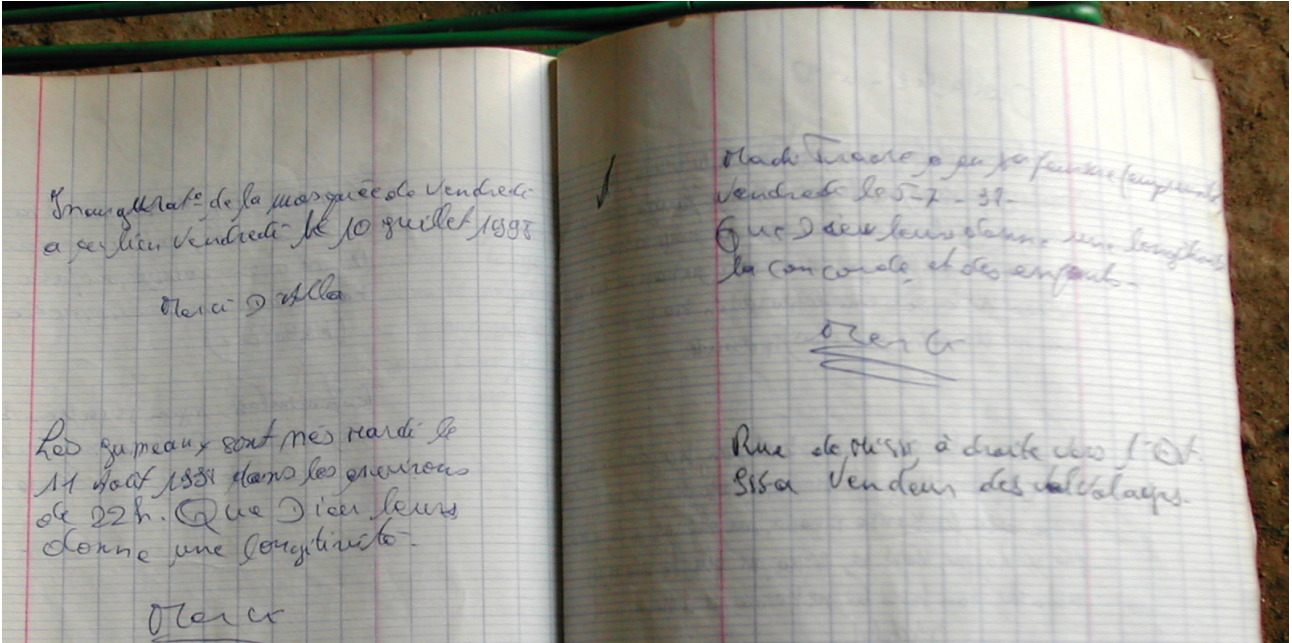 Inaugurat° de la mosquée de Vendredi
a eu lieu Vendredi le 10 juillet 1998
Merci D'Alla
Les jumeaux sont nés Mardi le
11 Août 1998 dans les environs
de 22h. Que Dieu leurs
donne une longitivité.
Merci
Madi Traore a eu sa femme
Vendredi le 5-7-
Que Dieu leurs donne une
la concorde et des enfants.
Merci
Rue de à droite vers l'
Issa Vendeur des